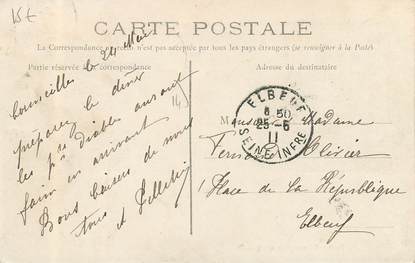 15€
CARTE POSTALE
La Correspondance au recto n'est pas acceptée par tous les pays étrangers (se renseigner à la Poste)
Partie réservée à la correspondance
Adresse du destinataire
Cormeilles le 24 Mai
préparez le dîner
les ptits diables auront
faim en arrivant
Bons baisers de nous
tous et
ELBEUF
8 50
25-5
11
SEINE INFRE
Monsieur Madame
Olivier
1 Place de la République
Elbeuf